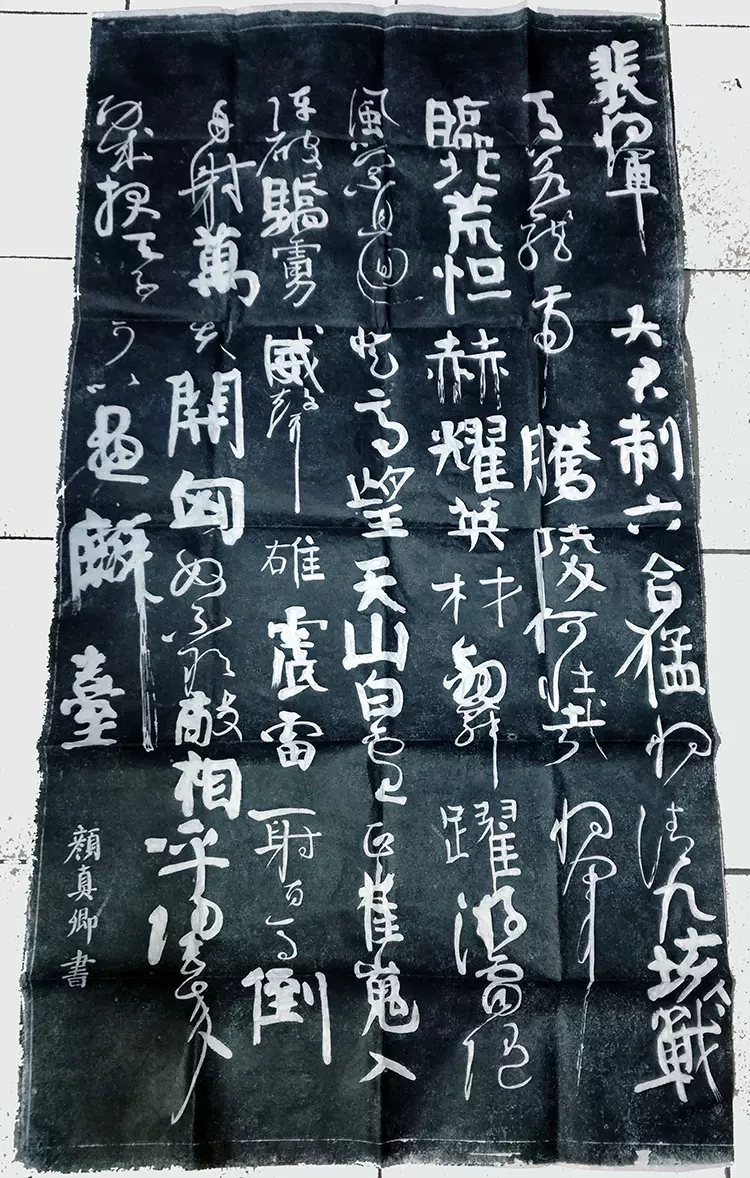 裴將軍 大君制六合猛將清九垓戰
馬若龍虎騰陵何壯哉將軍
臨北荒烜赫耀英材劒舞躍游電随
風縈且迴登高望天山白雲正崔嵬入
陣破驕虜威聲雄震雷一射百馬倒
再射萬夫開匈奴不敢敵相呼歸去來
功成報天子可以畫麟臺
顏真卿書